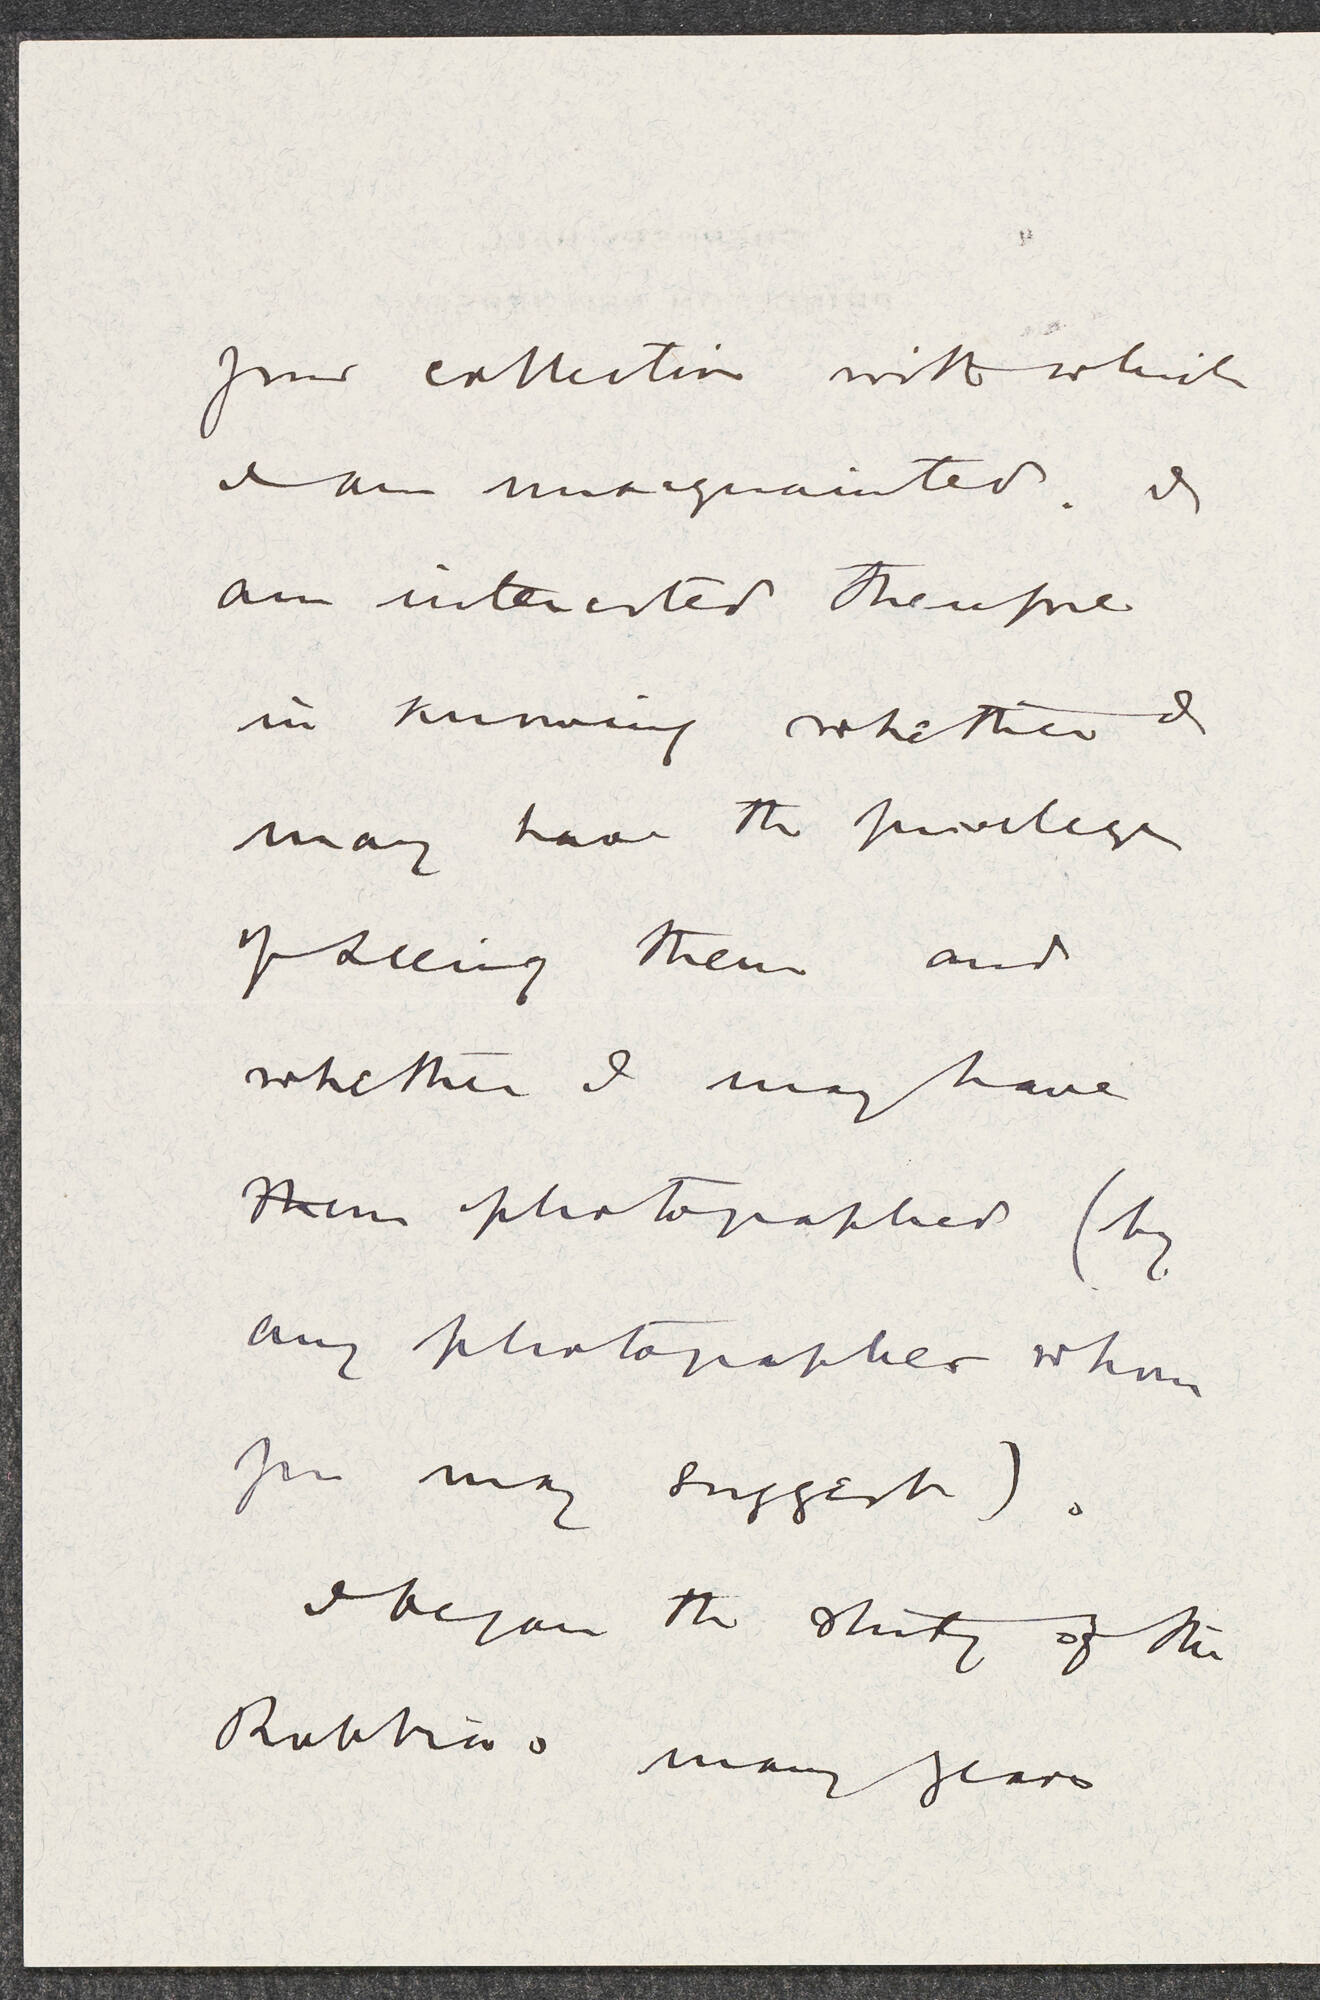 your collection with which
I am unacquainted. I
am interested therefore
in knowing whether I
may have the privilege
of seeing them and
whether I may have
them photographed (by
any photographer whom
you may suggest).
I began the study of the
Robbias many years